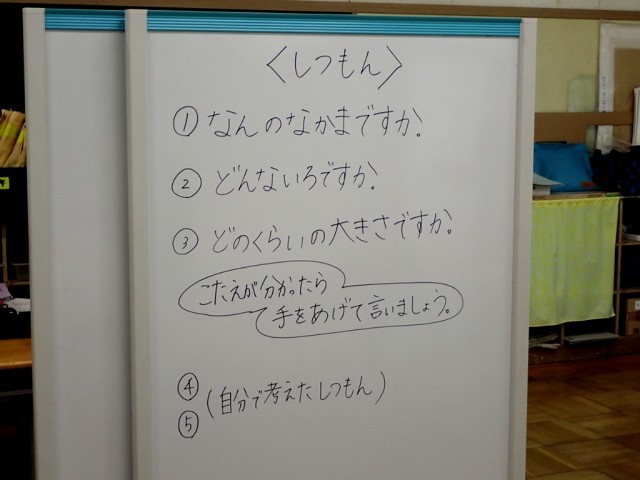 〈しつもん〉
① なんのなかまですか。
② どんないろですか。
③ どのくらいの大きさですか。
こたえが分かったら
手をあげて言いましょう。
④
⑤ (自分で考えたしつもん)